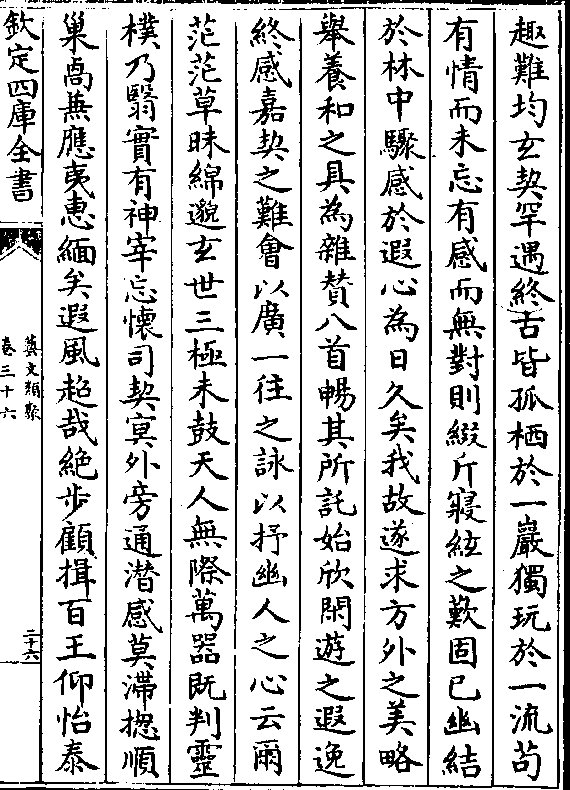 趣難均玄契罕遇終古皆孤栖於一巖獨玩於一流苟
有情而未忘有感而無對則綴斤寢絃之歎固已幽結
於林中驟感於遐心為日久矣我故遂求方外之美略
舉養和之具為雜贊八首暢其所託始欣閑遊之遐逸
終感嘉契之難會以廣一往之詠以抒幽人之心云爾
茫茫草昧綿邈玄世三極未鼓天人無際萬器既判靈
樸乃翳實有神宰忘懷司契冥外旁通潛感莫滯揔順
巢卨蕪應夷惠緬矣遐風超哉絶步顧揖百王仰怡泰
欽定四庫全書
藝文類聚
卷三十六
二十六